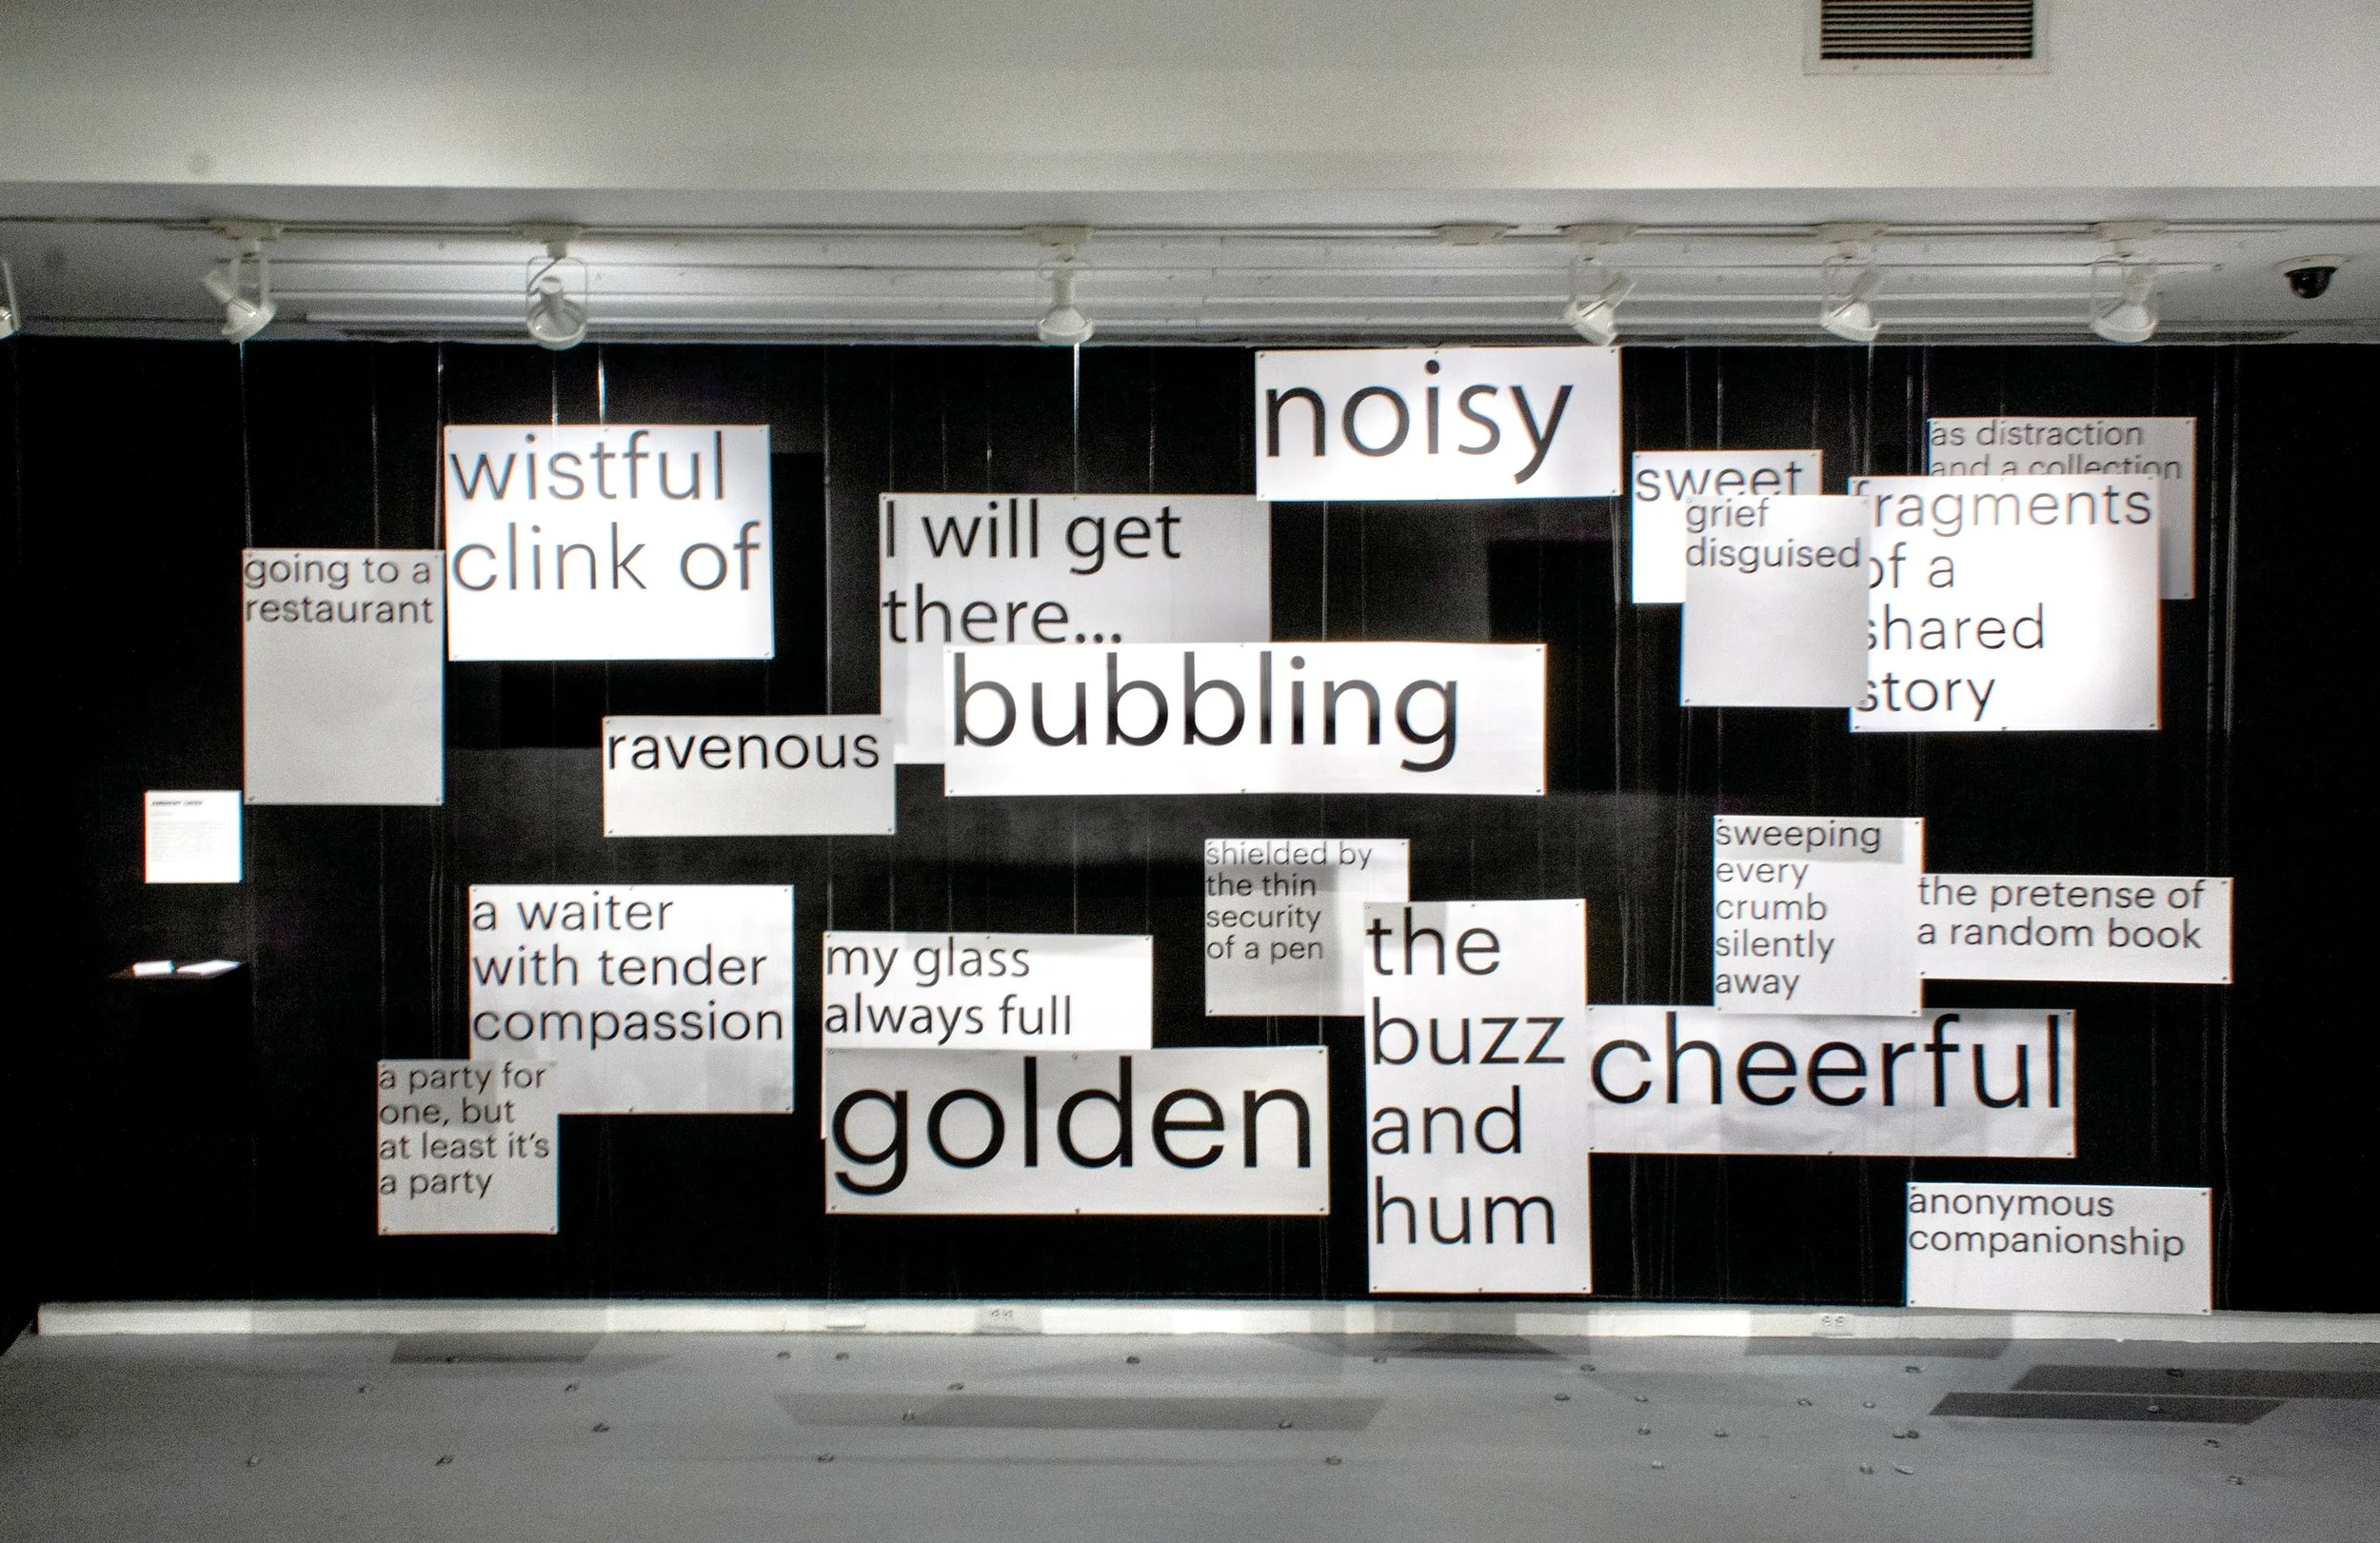 noisy
wistful
clink of
going to a
restaurant
I will get
there...
bubbling
ravenous
sweet
grief
disguised
as distraction
and a collection
fragments
of a
shared
story
a waiter
with tender
compassion
a party for
one, but
at least it's
a party
my glass
always full
golden
shielded by
the thin
security
of a pen
the
buzz
and
hum
sweeping
every
crumb
silently
away
the pretense of
a random book
cheerful
anonymous
companionship